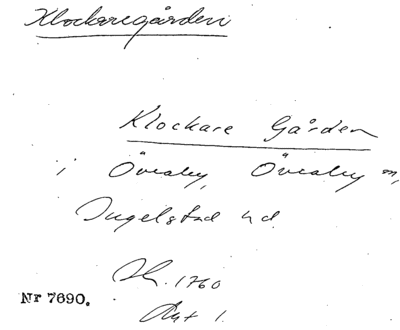 Klockaregården
Klockare Gården
i Överby, Överby sn,
Ingelstad hd.
Sk. 1760
Nr 7690.
Akt 1.